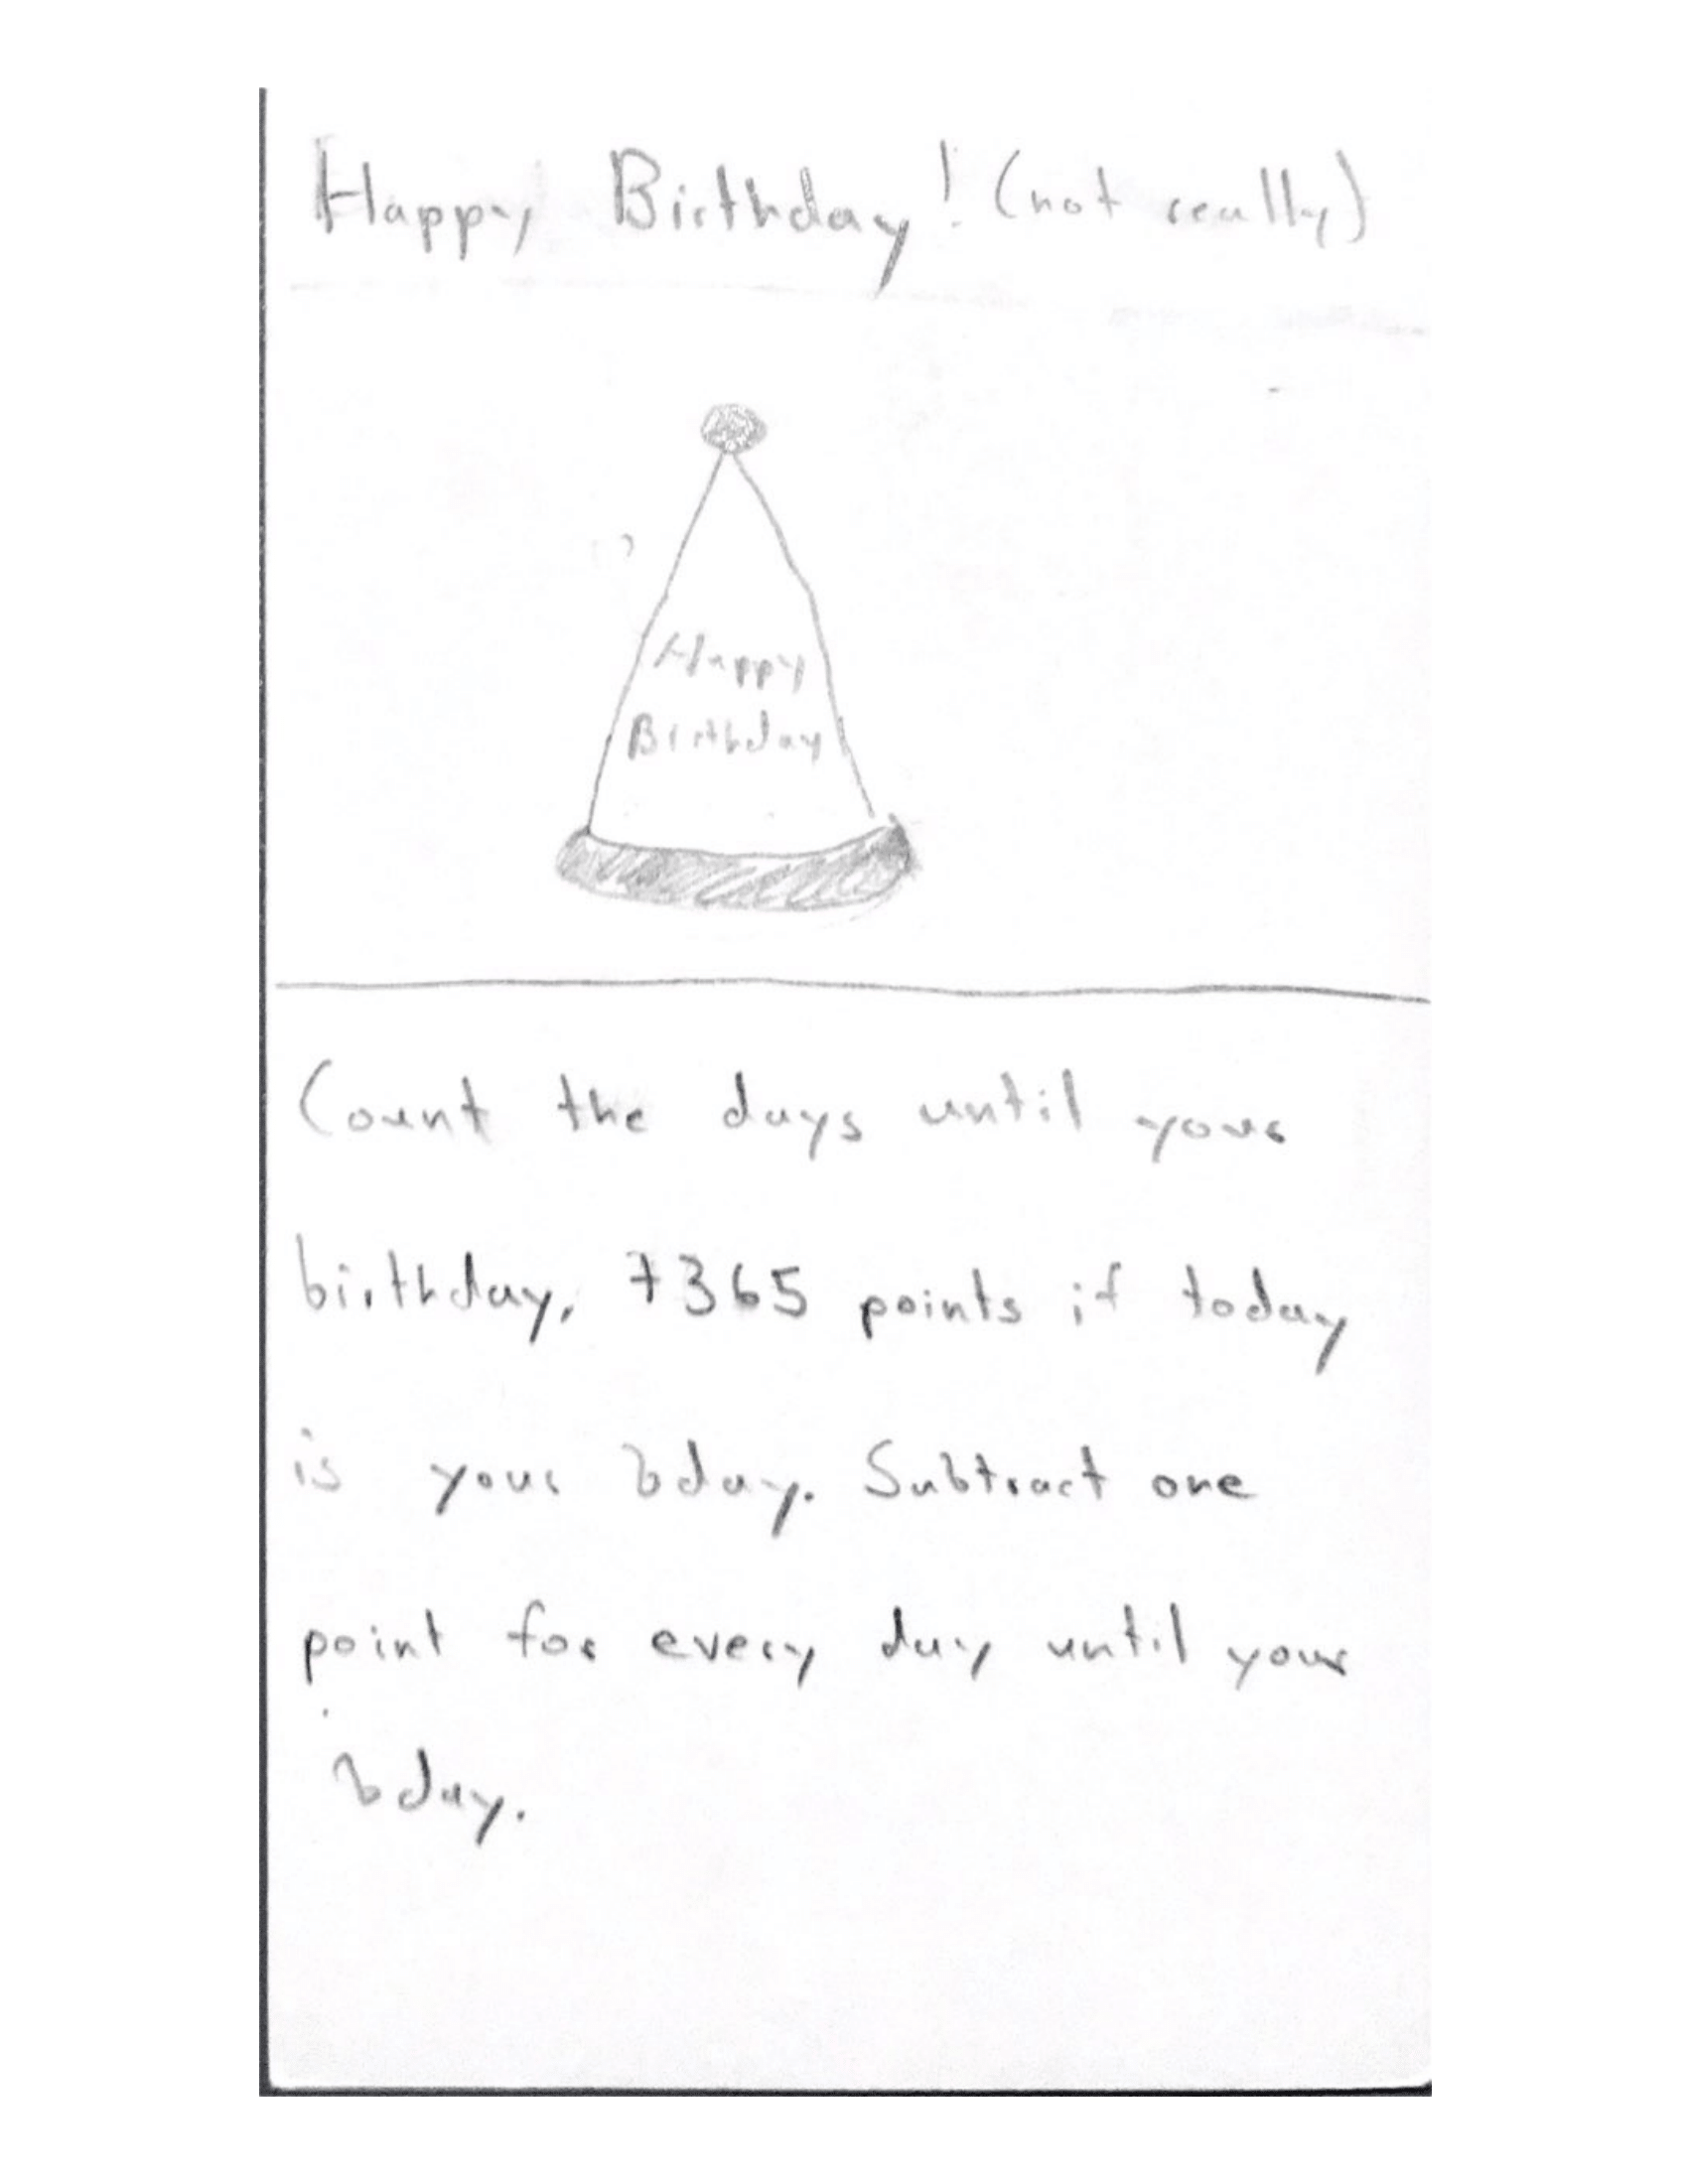 Happy Birthday! (not really)
Happy
Birthday
Count the days until your
birthday, +365 points if today
is your bday. Subtract one
point for every day until your
bday.